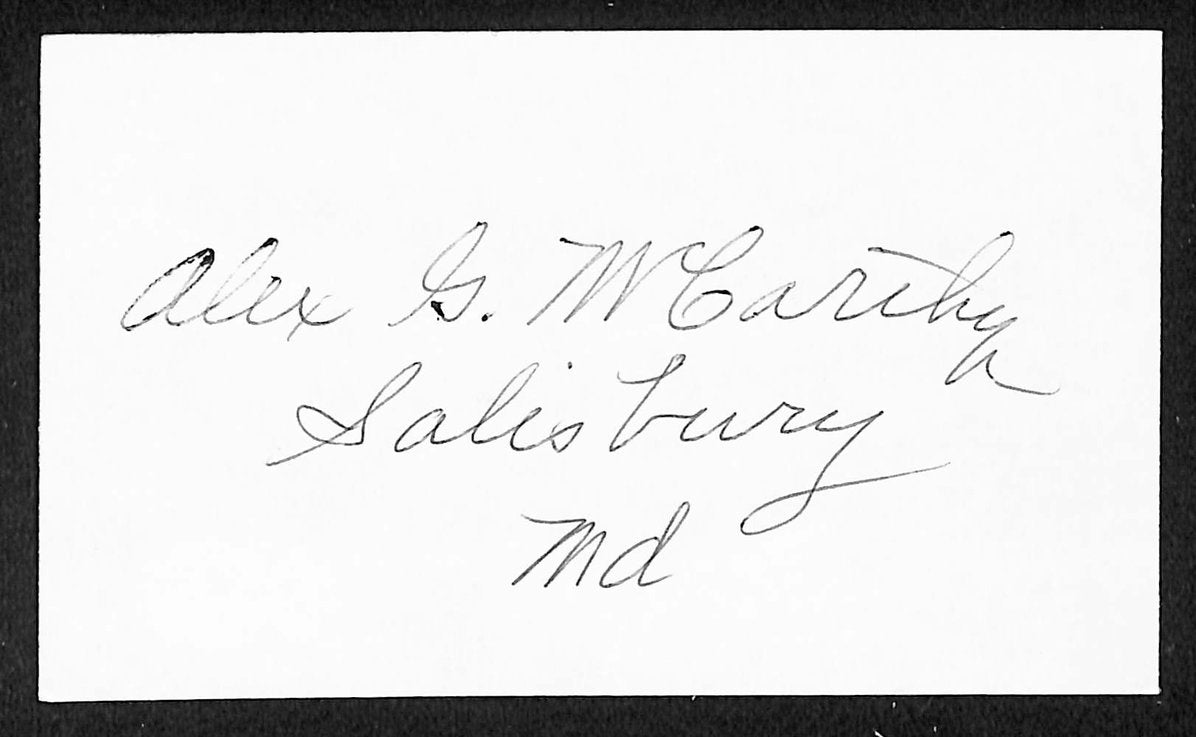 Alex G. McCarthy
Salisbury
Md